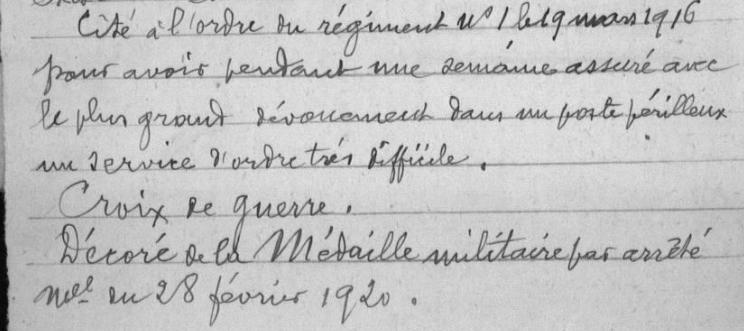 Cité à l'ordre du régiment N° 1 le 19 mars 1916
pour avoir pendant une semaine assuré avec
le plus grand dévouement dans un poste périlleux
un service d'ordre très difficile.
Croix de guerre.
Décoré de la Médaille militaire par arrêté
du 28 février 1920.